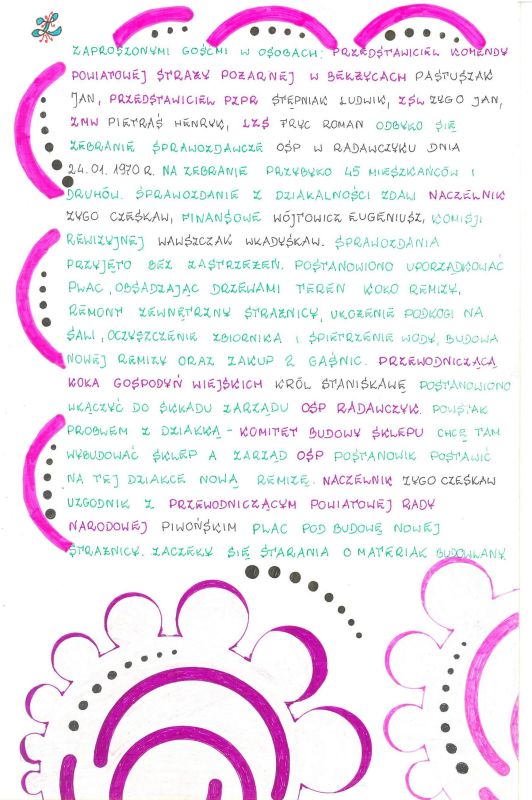 ZAPROSZONYMI GOŚĆMI W OSOBACH: PRZEDSTAWICIEL KOMENDY
POWIATOWEJ STRAŻY POŻARNEJ W BEŁŻYCACH PASTUSZAK
JAN, PRZEDSTAWICIEL PZPR STĘPNIAK LUDWIK, ZSL ŻYGO JAN,
ZMW PIETRAŚ HENRYK, LZS FRYC ROMAN ODBYŁO SIĘ
ZEBRANIE SPRAWOZDAWCZE OSP W RADAWCZYKU DNIA
24.01.1970 R. NA ZEBRANIE PRZYBYŁO 45 MIESZKAŃCÓW I
DRUHÓW. SPRAWOZDANIE Z DZIAŁALNOŚCI ZDAŁ NACZELNIK
ŻYGO CZESŁAW, FINANSOWE WÓJTOWICZ EUGENIUSZ, KOMISJI
REWIZYJNEJ WAWSZCZAK WŁADYSŁAW. SPRAWOZDANIA
PRZYJĘTO BEZ ZASTRZEŻEŃ. POSTANOWIONO UPORZĄDKOWAĆ
PLAC, OBSADZAJĄC DRZEWAMI TEREN KOŁO REMIZY,
REMONT ZEWNĘTRZNY STRAŻNICY, UŁOŻENIE PODŁOGI NA
SALI, OCZYSZCZENIE ZBIORNIKA I SPIĘTRZENIE WODY, BUDOWA
NOWEJ REMIZY ORAZ ZAKUP 2 GAŚNIC. PRZEWODNICZĄCĄ
KOŁA GOSPODYŃ WIEJSKICH KRÓL STANISŁAWĘ POSTANOWIONO
WŁĄCZYĆ DO SKŁADU ZARZĄDU OSP RADAWCZYK. POWSTAŁ
PROBLEM Z DZIAŁKĄ - KOMITET BUDOWY SKLEPU CHCE TAM
WYBUDOWAĆ SKLEP A ZARZĄD OSP POSTANOWIŁ POSTAWIĆ
NA TEJ DZIAŁCE NOWĄ REMIZĘ. NACZELNIK ŻYGO CZESŁAW
UZGODNIŁ Z PRZEWODNICZĄCYM POWIATOWEJ RADY
NARODOWEJ PIWOŃSKIM PLAC POD BUDOWĘ NOWEJ
STRAŻNICY. ZACZĘŁY SIĘ STARANIA O MATERIAŁ BUDOWLANY